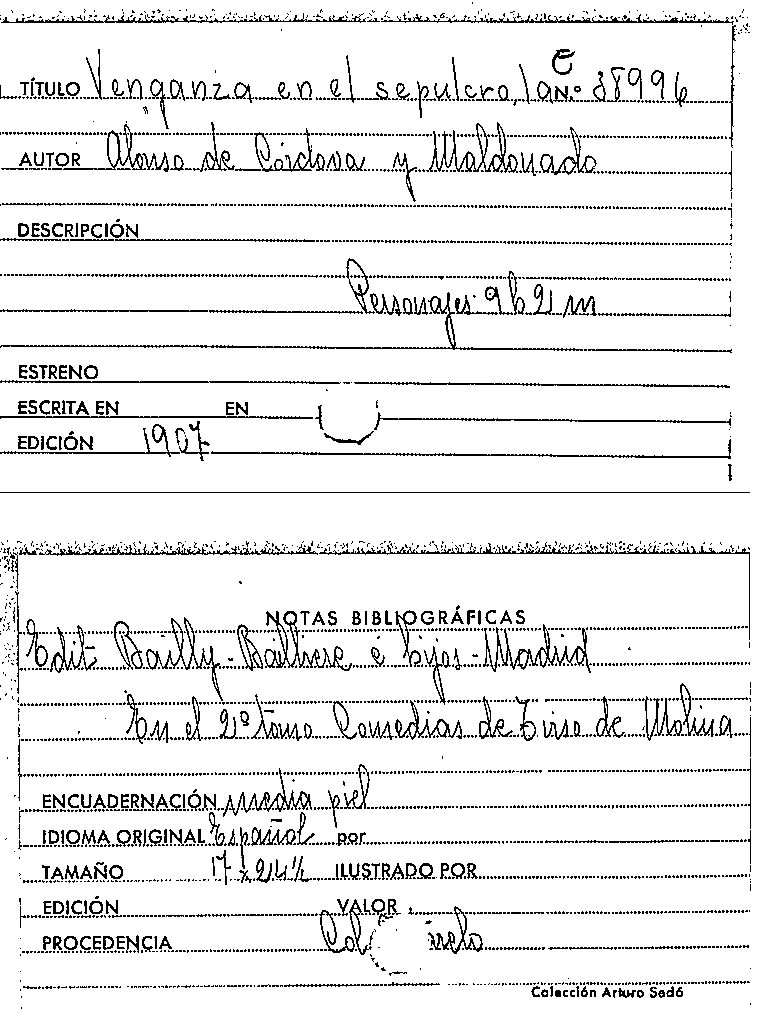 C
TÍTULO Venganza en el sepulcro, la N.º 38996
AUTOR Alonso de Córdova y Maldonado
DESCRIPCIÓN
Personajes: 9 h 2 m
ESTRENO
ESCRITA EN EN
EDICIÓN 1907
NOTAS BIBLIOGRÁFICAS
Edit Bailly-Balliere é hijos-Madrid
En el 2º tomo Comedias de Tirso de Molina
ENCUADERNACIÓN media piel
IDIOMA ORIGINAL Español por
TAMAÑO 17 x 24½ ILUSTRADO POR
EDICIÓN VALOR
PROCEDENCIA
Colección Arturo Sedó